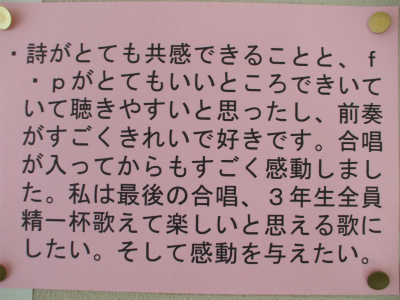 ・詩がとても共感できることと、ｆ
・ｐがとてもいいところできいて
いて聴きやすいと思ったし、前奏
がすごくきれいで好きです。合唱
が入ってからもすごく感動しまし
た。私は最後の合唱、３年生全員
精一杯歌えて楽しいと思える歌に
したい。そして感動を与えたい。